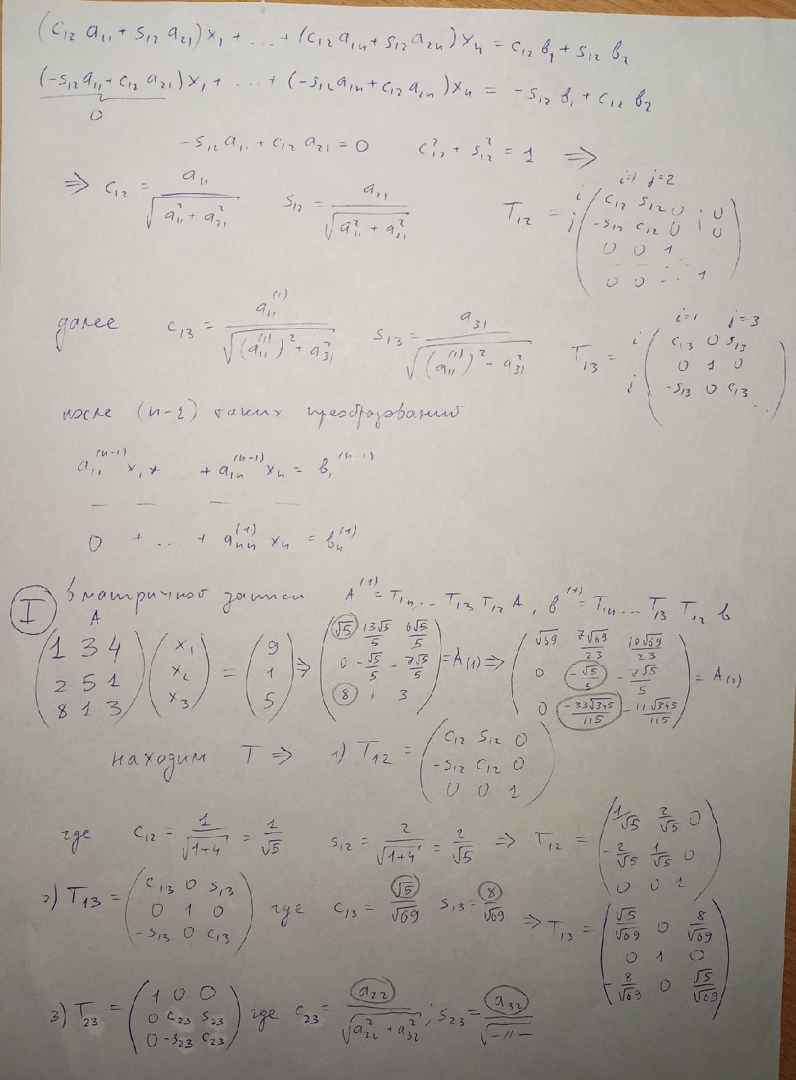 (c₁₂ a₁₁ + s₁₂ a₂₁)x₁ + ... + (c₁₂ a₁ₙ + s₁₂ a₂ₙ)xₙ = c₁₂ b₁ + s₁₂ b₂
(-s₁₂ a₁₁ + c₁₂ a₂₁)x₁ + ... + (-s₁₂ a₁ₙ + c₁₂ a₂ₙ)xₙ = -s₁₂ b₁ + c₁₂ b₂
0
-s₁₂ a₁₁ + c₁₂ a₂₁ = 0 c₁₂² + s₁₂² = 1 ⇒
⇒ c₁₂ = a₁₁ / √(a₁₁² + a₂₁²) s₁₂ = a₂₁ / √(a₁₁² + a₂₁²) T₁₂ = i=1 j=2 i j (c₁₂ s₁₂ 0 0; -s₁₂ c₁₂ 0 0; 0 0 1; 0 0 ... 1)
далее c₁₃ = a₁₁⁽¹⁾ / √((a₁₁⁽¹⁾)² + a₃₁²) s₁₃ = a₃₁ / √((a₁₁⁽¹⁾)² - a₃₁²) T₁₃ = i=1 j=3 i j (c₁₃ 0 s₁₃; 0 1 0; -s₁₃ 0 c₁₃ ...)
после (n-1) таких преобразований
a₁₁⁽ⁿ⁻¹⁾ x₁ + ... + a₁ₙ⁽ⁿ⁻¹⁾ xₙ = b₁⁽ⁿ⁻¹⁾
— — — —
0 + ... + aₙₙ⁽¹⁾ xₙ = bₙ⁽¹⁾
I в матричной записи A⁽¹⁾ = T₁ₙ ... T₁₃ T₁₂ A, b⁽¹⁾ = T₁ₙ ... T₁₃ T₁₂ b
A
(1 3 4; 2 5 1; 8 1 3) (x₁; x₂; x₃) = (9; 1; 5) ⇒ (√5 13√5/5 6√5/5; 0 -√5/5 -7√5/5; 8 1 3) = A₍₁₎ ⇒ (√69 7√69/23 10√69/23; 0 -√5/5 -7√5/5; 0 -33√345/115 -11√345/115) = A₍₂₎
находим T ⇒ 1) T₁₂ = (c₁₂ s₁₂ 0; -s₁₂ c₁₂ 0; 0 0 1)
где c₁₂ = 1/√(1+4) = 1/√5 s₁₂ = 2/√(1+4) = 2/√5 ⇒ T₁₂ = (1/√5 2/√5 0; -2/√5 1/√5 0; 0 0 1)
2) T₁₃ = (c₁₃ 0 s₁₃; 0 1 0; -s₁₃ 0 c₁₃) где c₁₃ = √5/√69 s₁₃ = 8/√69 ⇒ T₁₃ = (√5/√69 0 8/√69; 0 1 0; -8/√69 0 √5/√69)
3) T₂₃ = (1 0 0; 0 c₂₃ s₂₃; 0 -s₂₃ c₂₃) где c₂₃ = a₂₂ / √(a₂₂² + a₃₂²); s₂₃ = a₃₂ / √(-11-)